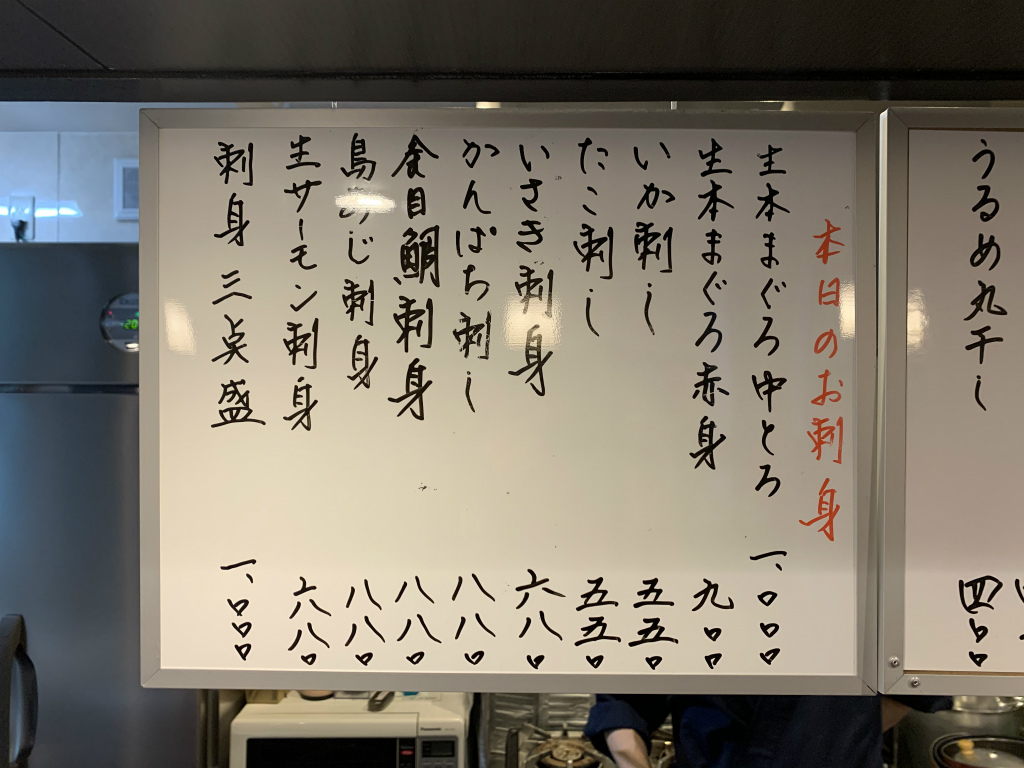 うるめ丸干し 四〇〇
本日のお刺身
生本まぐろ中とろ 一、〇〇〇
生本まぐろ赤身 九〇〇
いか刺し 五五〇
たこ刺し 五五〇
いさき刺身 六八〇
かんぱち刺し 八八〇
金目鯛刺身 八八〇
島あじ刺身 八八〇
生サーモン刺身 六八〇
刺身三点盛 一、〇〇〇
Panasonic